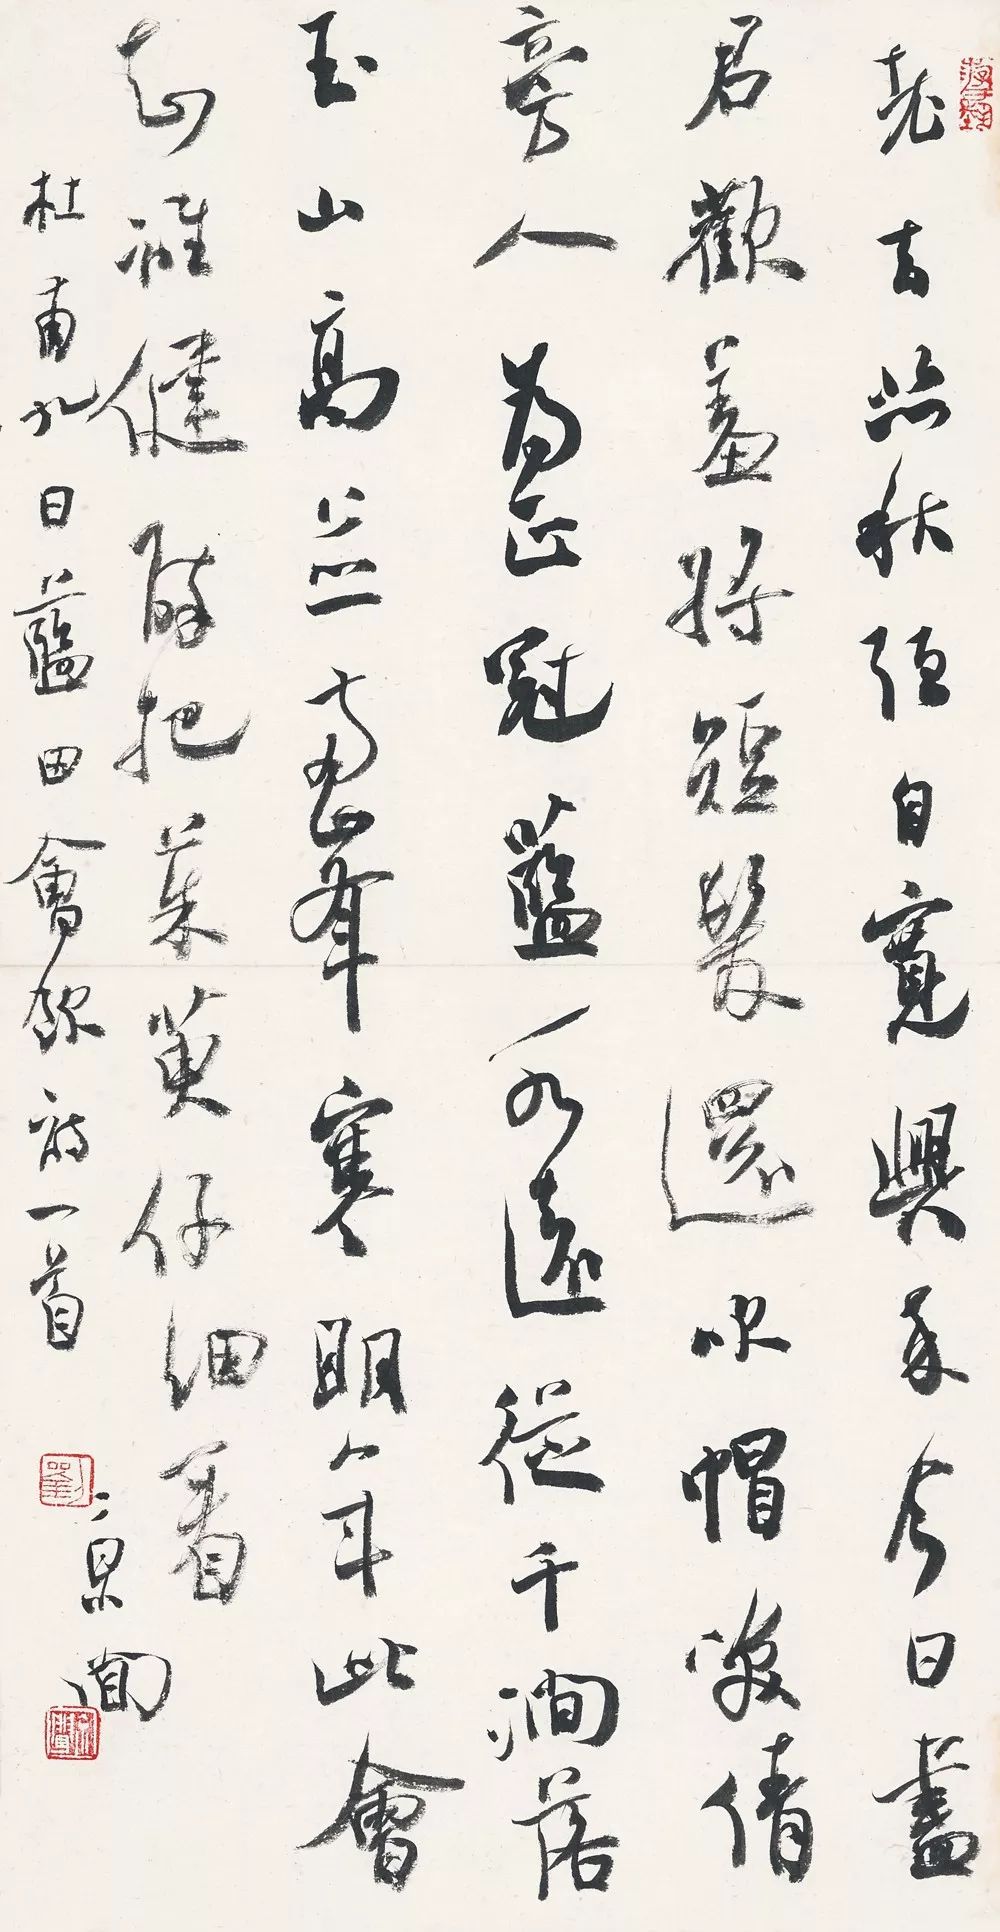 老去悲秋強自寬興來今日盡
君歡羞將短髮還吹帽咲倩
旁人為正冠藍水遠從千澗落
玉山高並兩峯寒明年此會
知誰健醉把茱萸仔細看
杜甫九日藍田會飲詩一首
劉